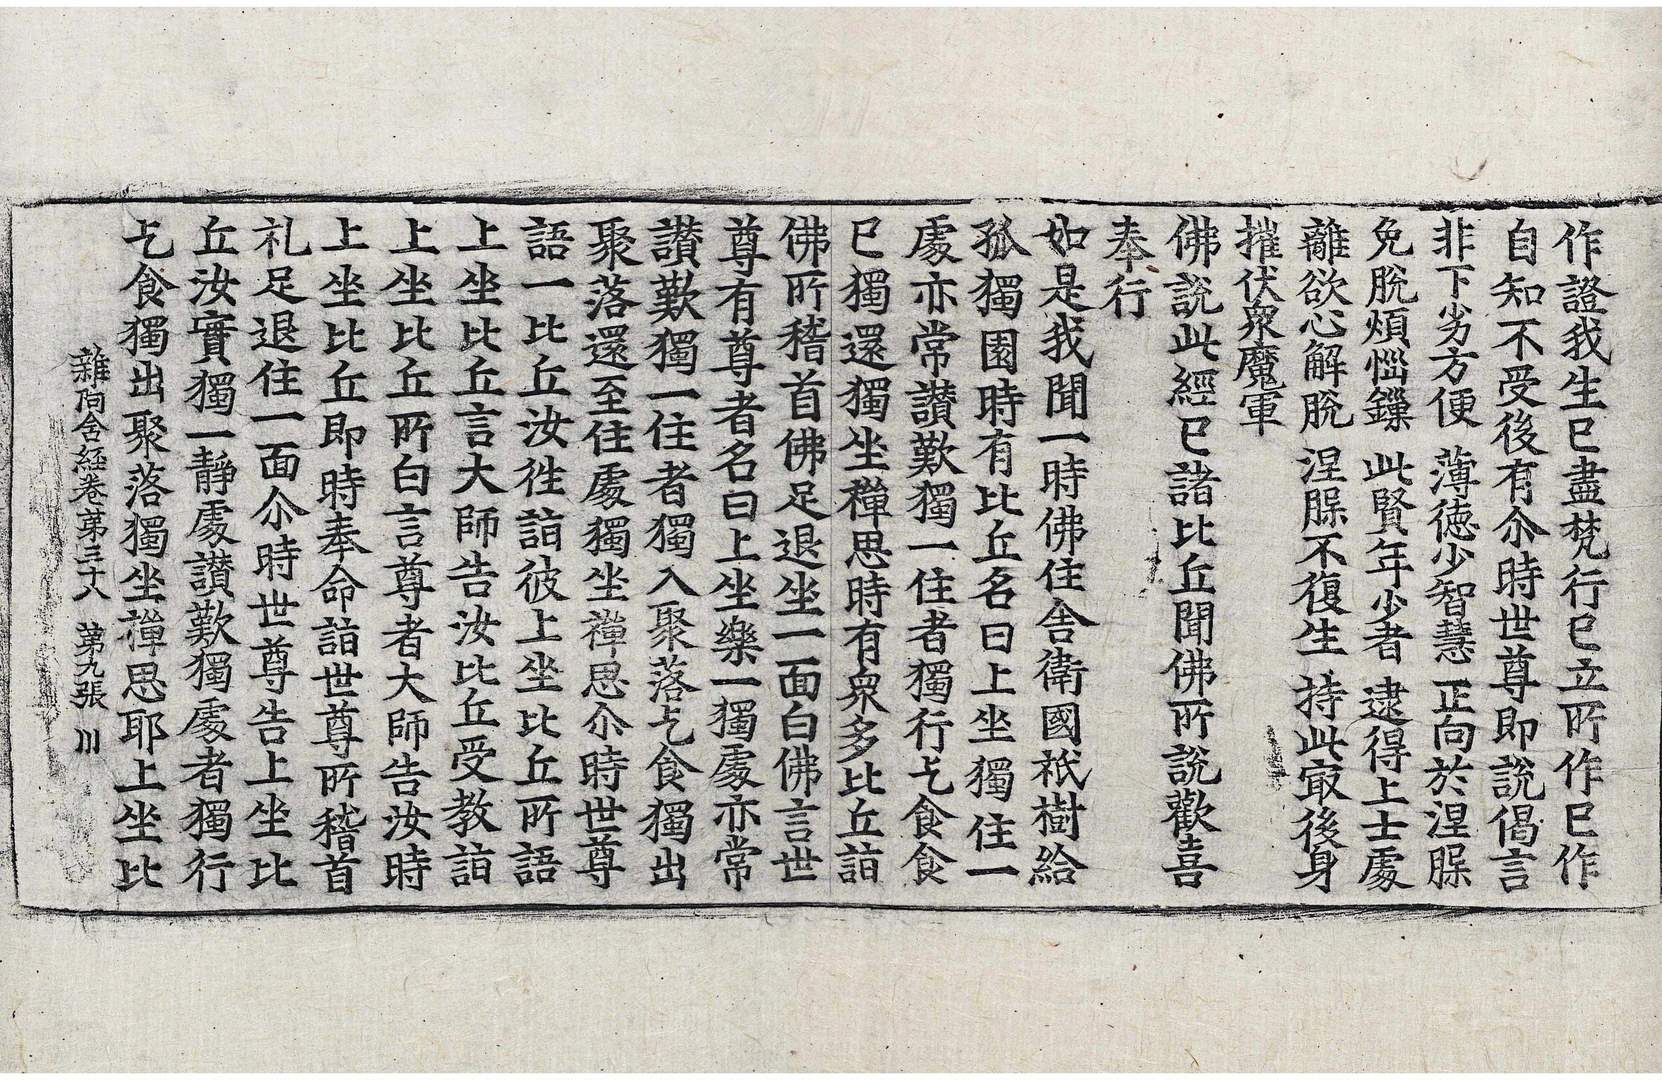 作證我生已盡梵行已立所作已作
自知不受後有尒時世尊即說偈言
非下劣方便 薄德少智慧 正向於涅槃
免脫煩惱鏁 此賢年少者 逮得上士處
離欲心解脫 涅槃不復生 持此㝡後身
摧伏衆魔軍
佛說此經已諸比丘聞佛所說歡喜
奉行
如是我聞一時佛住舍衛國祇樹給
孤獨園時有比丘名曰上坐獨住一
處亦常讃歎獨一住者獨行乞食食
已獨還獨坐禪思時有衆多比丘詣
佛所稽首佛足退坐一面白佛言世
尊有尊者名曰上坐樂一獨處亦常
讃歎獨一住者獨入聚落乞食獨出
聚落還至住處獨坐禪思尒時世尊
語一比丘汝徃詣彼上坐比丘所語
上坐比丘言大師告汝比丘受教詣
上坐比丘所白言尊者大師告汝時
上坐比丘即時奉命詣世尊所稽首
礼足退住一面尒時世尊告上坐比
丘汝實獨一靜處讃歎獨處者獨行
乞食獨出聚落獨坐禪思耶上坐比
雜阿含經卷第三十八 第九張 川